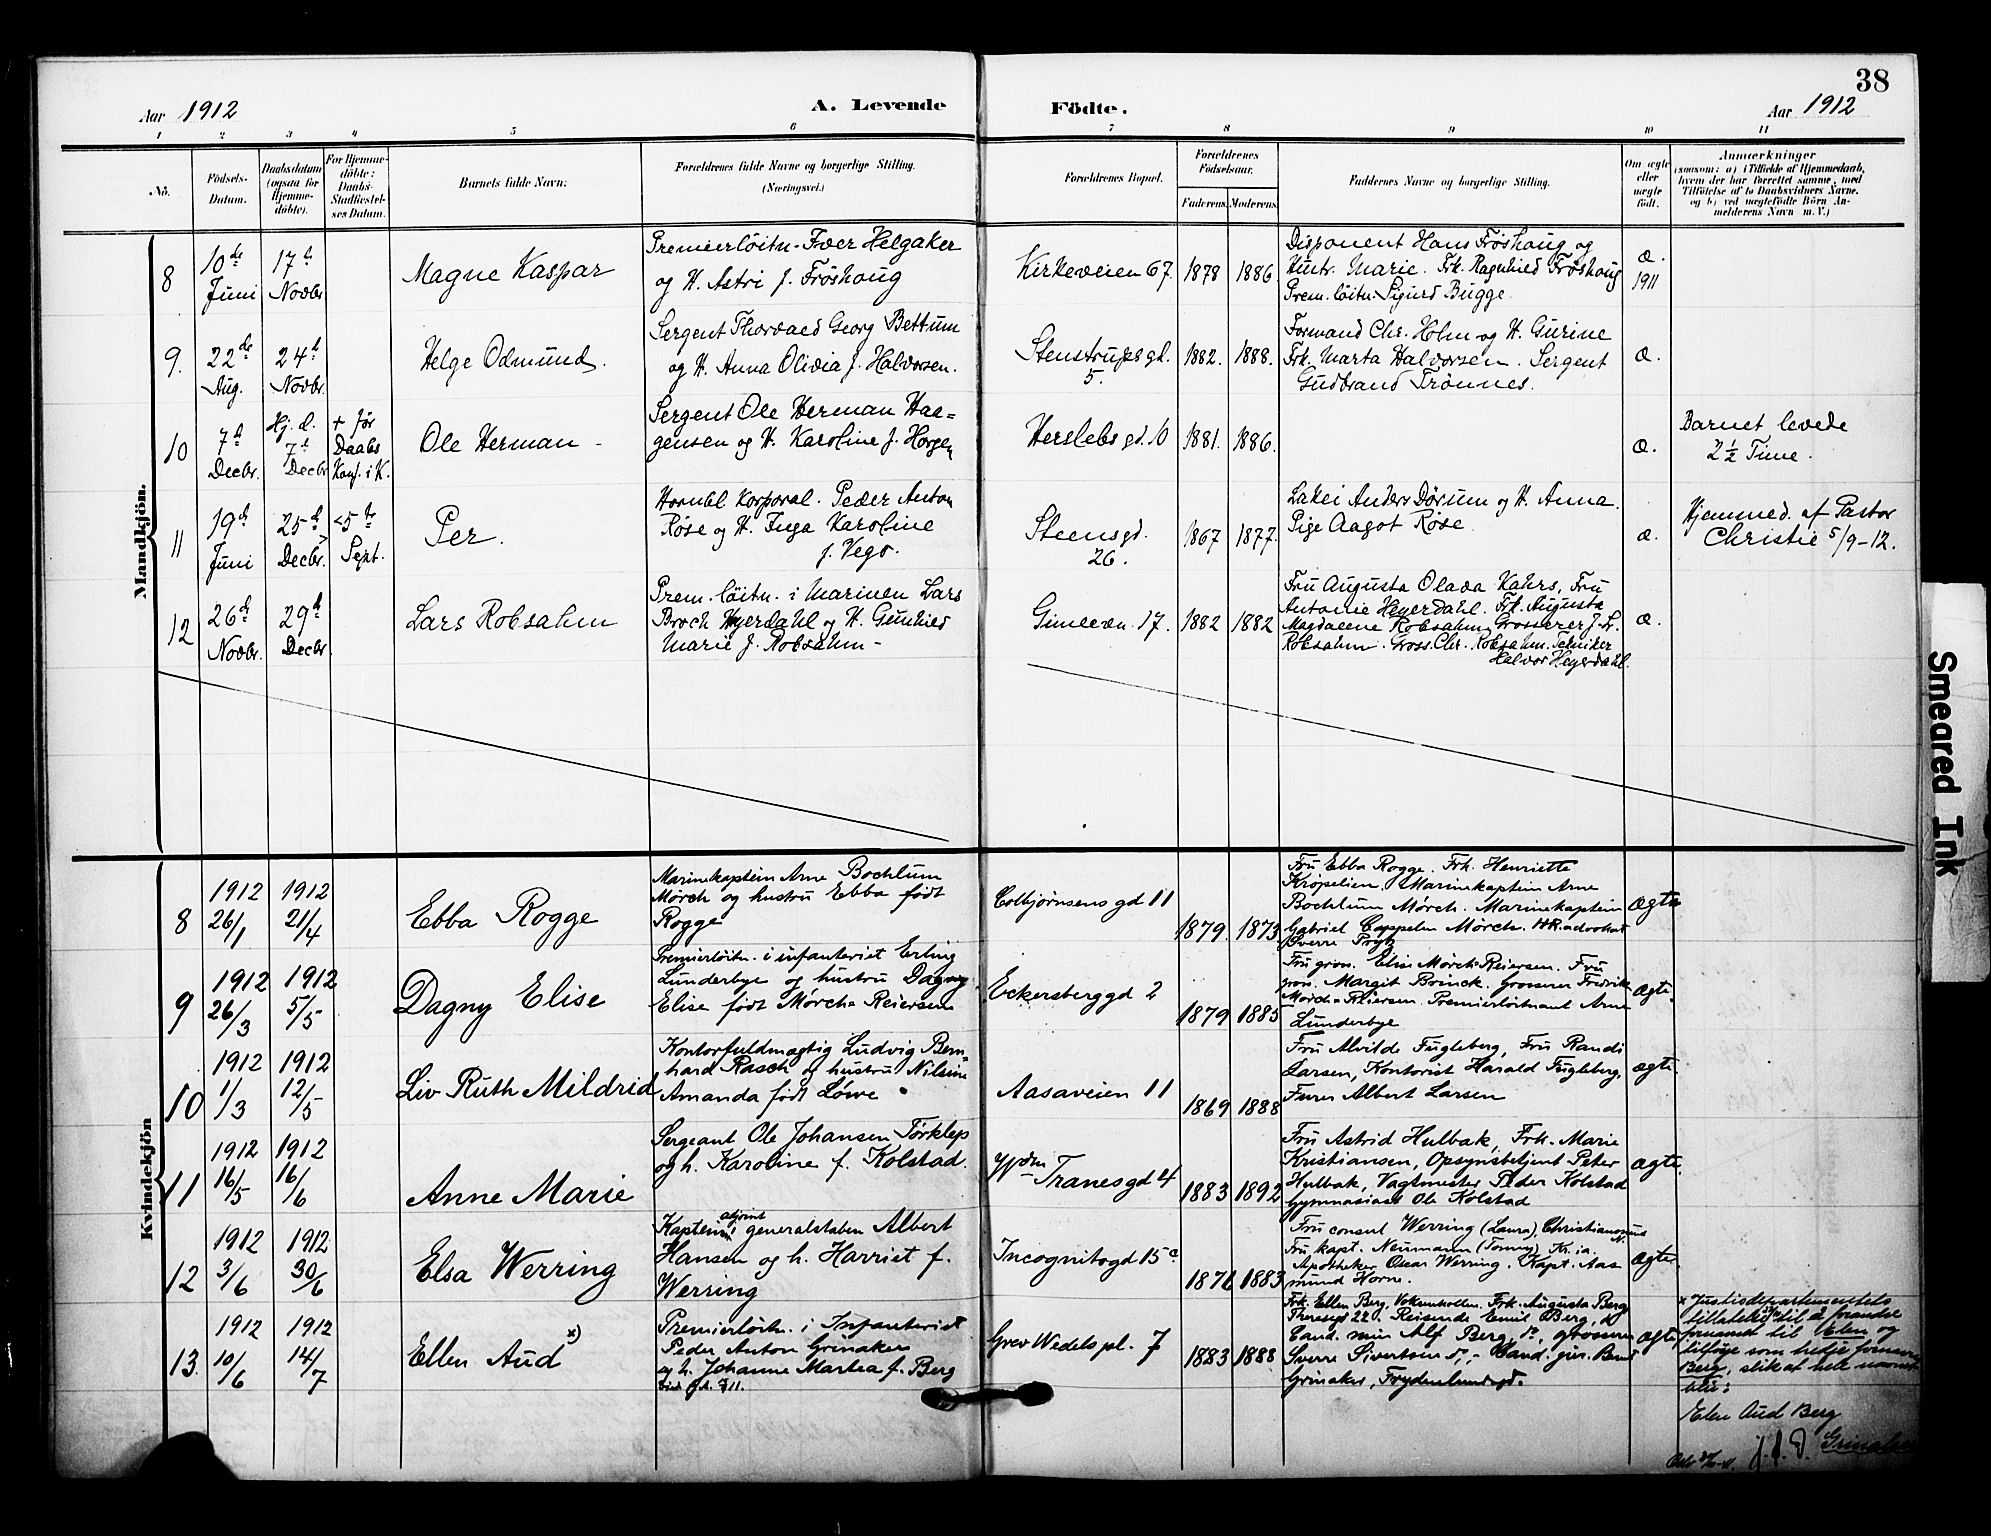 38
Aar 1912
A. Levende
Födte.
Aar 1912
1 2 3 4 5 6 7 8 9 10 11
No.
Födsels-
Datum.
Daabsdatum
(ogsaa for
Hjemme-
döbte).
For Hjemme-
döbte:
Daabs-
Stadfæstel-
ses Datum.
Barnets fulde Navn.
Forældrenes fulde Navne og borgerlige Stilling.
(Næringsvei.)
Forældrenes Bopæl.
Forældrenes
Födselsaar.
Faderens. Moderens.
Faddernes Navne og borgerlige Stilling.
Om ægte
eller
uægte
födt.
Anmærkninger
(saasom: a) i Tilfælde af Hjemmedaab,
hvem der har forrettet samme, med
Tilföielse af to Daabsvidners Navne,
og b) ved uægtefödte Börn An-
melderens Navn m. V.)
Mandkjön.
8
10de
Juni
17d
Novbr
Magne Kaspar
Premierløitn. Iver Helgaker
og H. Astri f. Frøshaug
Kirkeveien 67.
1878
1886
Disponent Hans Frøshaug og
Hustr. Marie. Frk. Ragnhild Frøshaug
Prem. löitn. Sigurd Bugge.
Æ.
1911
9.
22de
Aug.
24d
Novbr.
Helge Odmund.
Sergent Thorvald Georg Bettum
og H. Anna Olivia f. Halvorsen.
Stenstrupsgd.
5.
1882.
1888.
Formand Chr. Holm og H. Gurine
Frk. Marta Halvorsen. Sergent
Gudbrand Trönnes.
Æ.
10
7d
Decbr.
Hj. d.
7d
Decbr
+ før
Daabs
Kanf. i K.
Ole Herman -
Sergent Ole Herman Haa=
gensen og H. Karoline f. Horgen
Herslebsgd. 10
1881.
1886.
Æ.
Barnet levede
2 1/2 Time.
11
19d
Juni
25d
Decbr.
<5te
Sept.
Per.
Hornbl. Korporal. Peder Anton
Röse og H. Inga Karoline
f. Vego.
Steensgd.
26.
1867
1877.
Lakei Anders Dørum og H. Anna.
Pige Aagot Röse.
Æ.
Hjemmed. af Pastor
Christie 5/9-12.
12
26d
Novbr.
29d
Decbr
Lars Robsahm
Prem. löitn. i Marinen Lars
Broch Heyerdahl og H. Gunhild
Marie f. Robsahm -
Gimlevn. 17.
1882
1882
Fru Augusta Olava Kahrs, Fru
Antonie Heyerdahl. Frk. Augusta
Magdalene Robsahm, Grosserer J. Fr.
Robsahm. Gross. Chr. Robsahm. Tekniker
Halvor Heyerdahl.
Æ.
Kvindekjön
8
1912
26/1
1912
21/4
Ebba Rogge
Marinekaptein Arne Bochlum
Mørch og hustru Ebba født
Rogge
Colbjørnsens gd 11
1879.
1873
Fru Ebba Rogge. Frk. Henriette
Krøpelien. Marinekaptein Arne
Bochlum Mørch. Marinekaptein
Gabriel Cappelen Mørch. HR.advokat
Sverre Prytz
ægte
9
1912
26/3
1912
5/5
Dagny Elise
Premierløitn. i infanteriet Erling
Lunderbye og hustru Dagny
Elise født Mørch-Reiersen
Eckersberggd 2
1879
1885
Fru gros. Elise Mørch-Reiersen. Fru
gros. Margit Brinck. grosserer Fredrik
Mørch-Reiersen. Premierløitnant Arne
Lunderbye
ægte.
10
1912
1/3
1912
12/5
Liv Ruth Mildrid
Kontorfuldmægtig Ludvig Bern-
hard Rasch og hustru Nilsine
Amanda født Løwe
Aasaveien 11
1869
1888
Fru Alvilde Fugleberg, Fru Randi
Larsen, Kontorist Harald Fugleberg,
Furer Albert Larsen
ægte.
11
1912
16/5
1912
16/6
Anne Marie
Sergeant Ole Johansen Törklep
og h. Karoline f. Kolstad.
Tranesgd 4
1883
1892
Fru Astrid Hulbak, Frk. Marie
Kristiansen, Opsynsbetjent Peter
Hulbak, Vagtmester Peder Kolstad
Gymnasiast Ole Kolstad
ægte.
12
1912
3/6
1912
30/6
Elsa Werring
Kaptein adjoint i generalstaben Albert
Hansen og h. Harriet f.
Werring
Incognitogd 15c
1876
1883
Fru consul Werring (Laura), Christianssund N.
Fru kapt. Neumann (Tonny) Kr.ia.
Apotheker Oscar Werring. Kapt. Aas
mund Horne.
ægte
13.
1912
10/6
1912
14/7
Ellen Aud x)
Premierløitn. i Infanteriet
Peder Anton Grinaker
og h. Johanne Martea f. Berg
Grev Wedels pl. 7
1883
1888
Frk. Ellen Berg, Voksenkollen. Frk. Augusta Berg
Theresesg 22. Reisende Emil Berg, do
Cand. min Alf Berg, do, grosserer
Sverre Sivertsen do,- Cand. jur. Bernt
Grinaker, Frydenlundsgd.
ægte
x Justisdepartementets
tillatelse til å forandre
fornavnet til Elen og
tilføie som tredje fornavn
Berg, slik at hele navnet
blir:
Elen Aud Berg
Grinaker
Smeared Ink